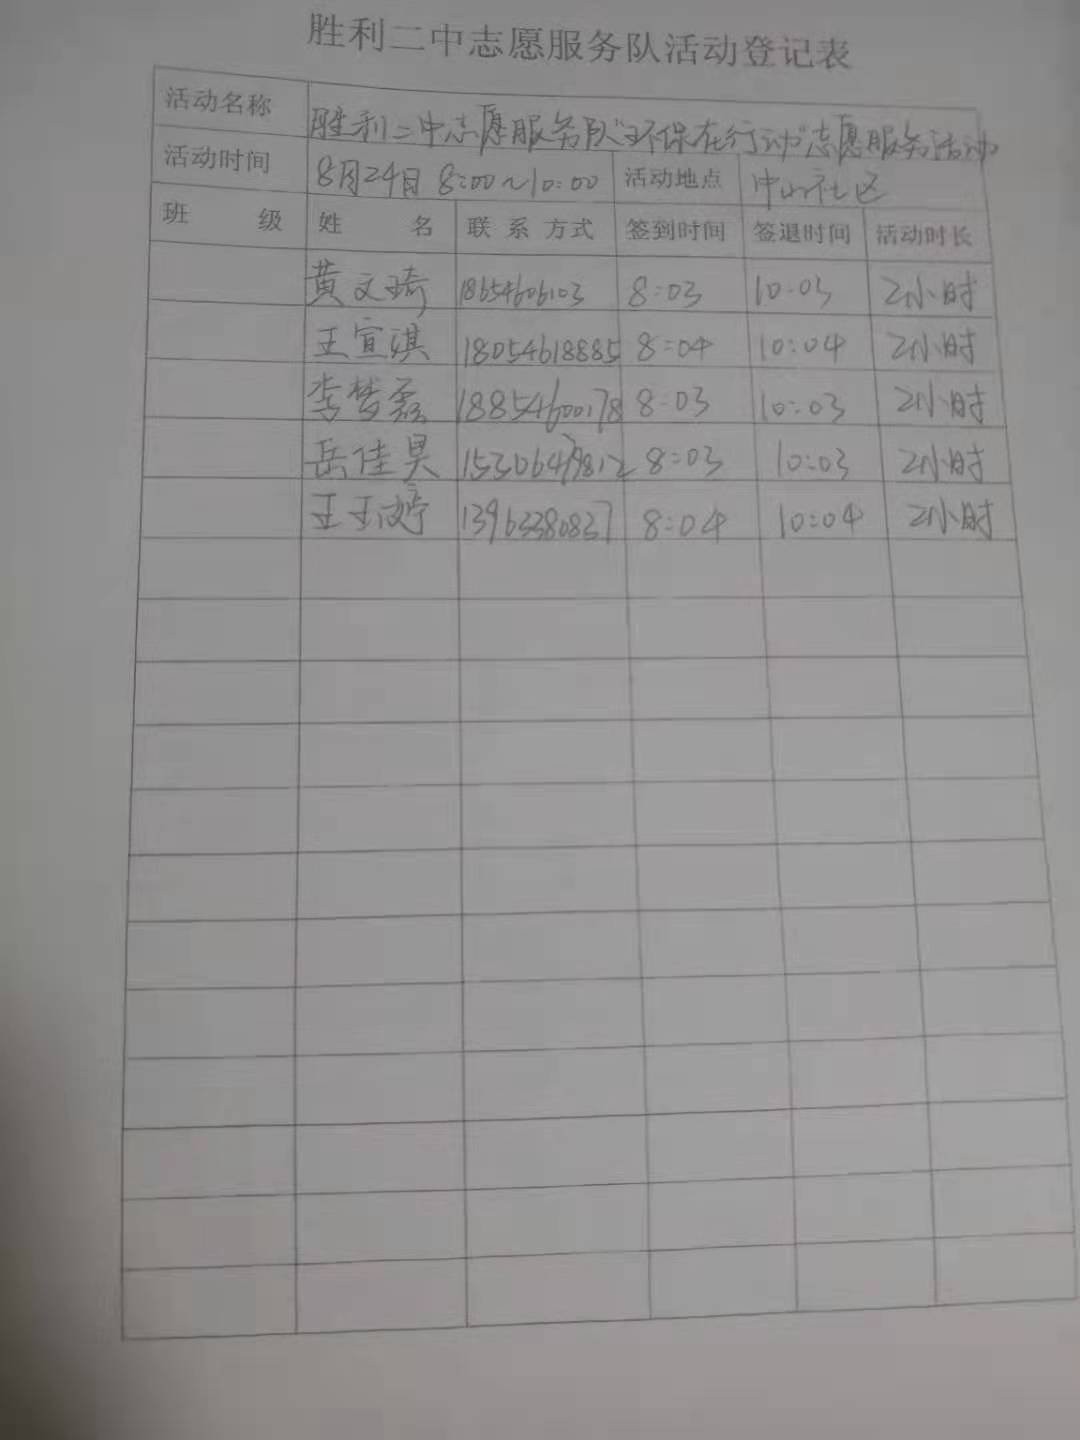 胜利二中志愿服务队活动登记表
活动名称 胜利二中志愿服务队"环保在行动"志愿服务活动
活动时间 8月24日 8:00~10:00 活动地点 中山社区
班 级 姓 名 联系方式 签到时间 签退时间 活动时长
黄文琦 18654606103 8:03 10:03 2小时
王宣淇 18054618885 8:04 10:04 2小时
李梦磊 18854600178 8:03 10:03 2小时
岳佳昊 8:03 10:03 2小时
王玉婷 13963380837 8:04 10:04 2小时